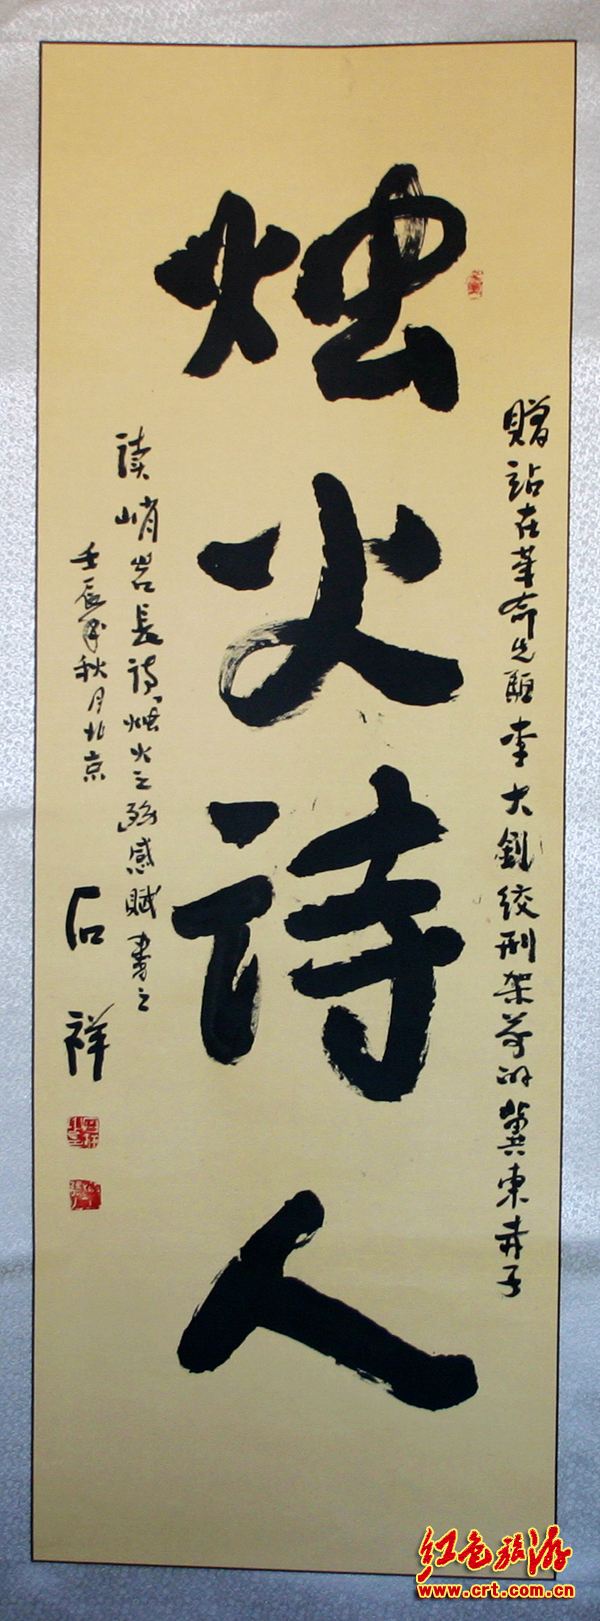 赠站在革命先驱李大钊绞刑架前的冀东赤子
烛火诗人
读峭岩长诗《烛火之殇》感赋书之
壬辰年秋月北京
石祥
红色旅游
www.crt.com.cn